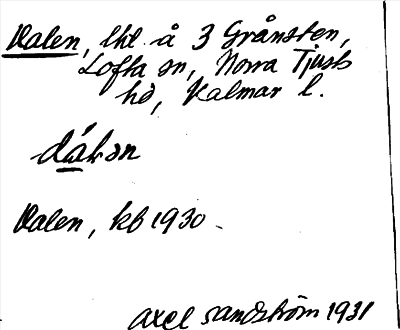 Dalen, lhl. å 3 Grånsten,
Lofta sn, Norra Tjusts
hd, Kalmar l.
dálən
Dalen, kb 1930.
Axel Sandström 1931